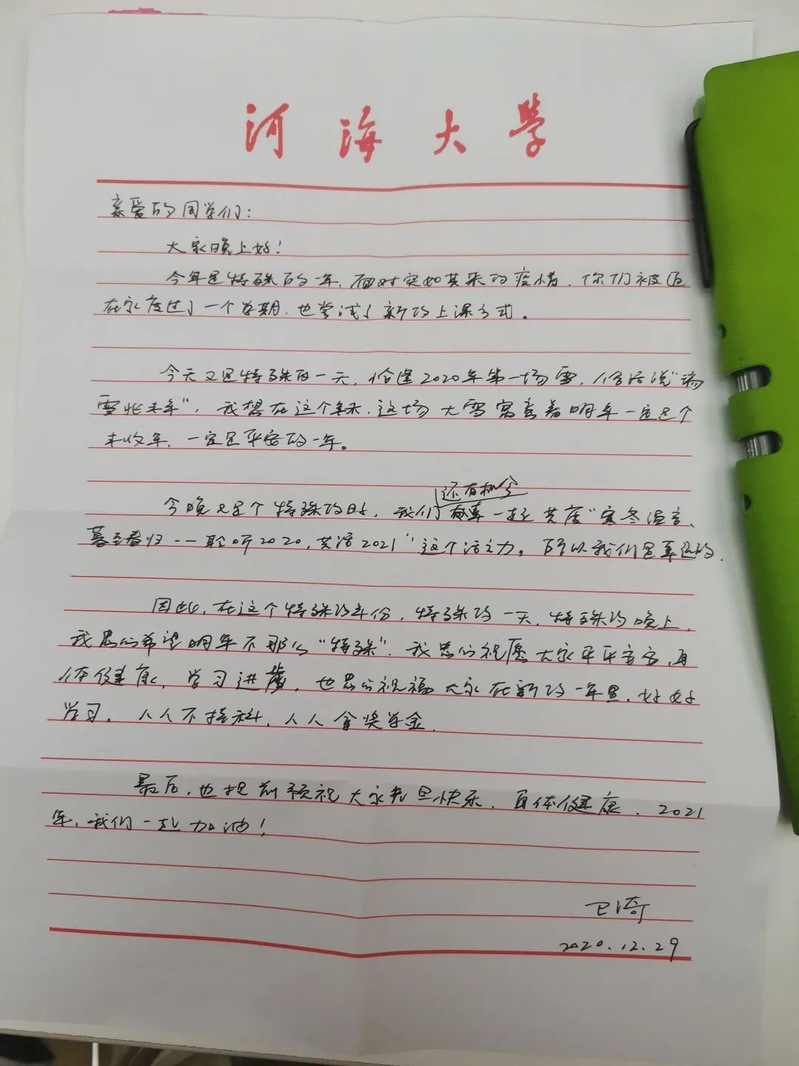 河海大学
亲爱的同学们：
大家晚上好！
今年是特殊的一年，面对突如其来的疫情，你们被迫
在家度过了一个学期，也尝试了新的上课方式。
今天又是特殊的一天，恰逢2020年第一场雪，俗话说"瑞
雪兆丰年"，我想在这个年末，这场大雪寓意着明年一定是个
丰收年，一定是平安的一年。
今晚又是个特殊的时，我们还有机会一起共度"寒冬温言、
暮至春归--聆听2020，共话2021"这个活动。所以我们是幸运的.
因此，在这个特殊的年份，特殊的一天，特殊的晚上，
我衷心希望明年不那么"特殊"，我衷心祝愿大家平平安安，身
体健康，学习进步，也衷心祝福大家在新的一年里，好好
学习，人人不挂科，人人拿奖学金.
最后，也提前预祝大家元旦快乐，身体健康，2021
年，我们一起加油！
2020.12.29